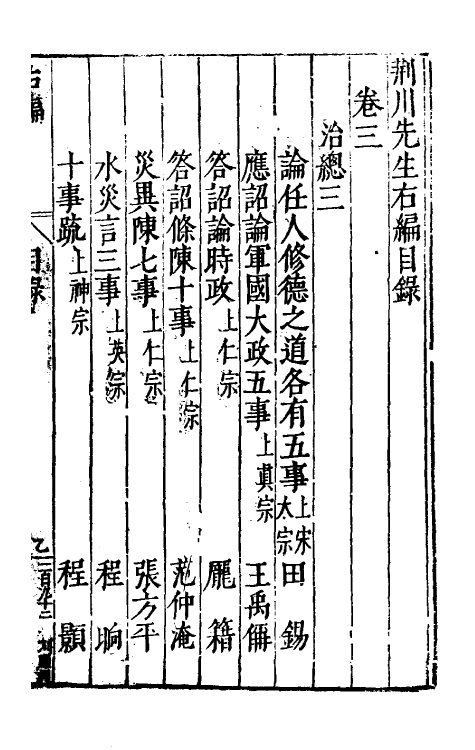 荆川先生右編目錄
卷三
治總三
論任人修德之道各有五事 上宋太宗 田錫
應詔論軍國大政五事 上真宗 王禹偁
答詔論時政 上仁宗 龐籍
答詔條陳十事 上仁宗 范仲淹
災異陳七事 上仁宗 張方平
水災言三事 上英宗 程晌
十事疏 上神宗 程顥
右編
目錄